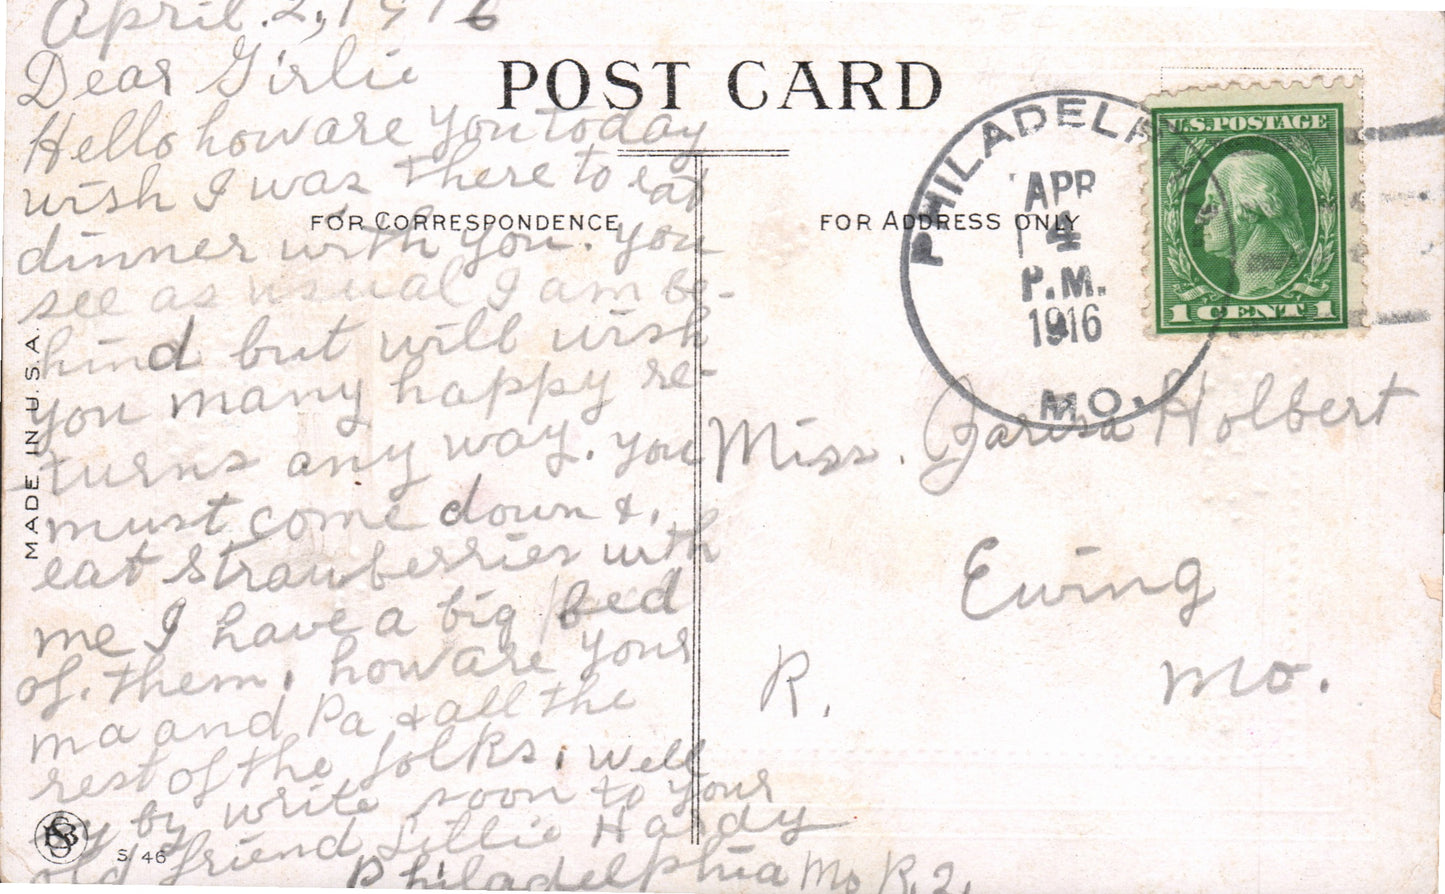 April. 2, 1916
Dear Girlie
Hello how are you today
wish I was there to eat
dinner with you. you
see as usual I am be-
hind but will wish
you many happy re-
turns any way. you
must come down &.
eat strawberries with
me I have a big bed
of. them, how are your
ma and Pa & all the
rest of the folks. well
by by write soon to your
old friend Lillie Hardy
Philadelphia Mo R. 2.
POST CARD
FOR CORRESPONDENCE
FOR ADDRESS ONLY
MADE IN U.S.A.
S. 46
PHILADELPHIA
APR
4
P.M.
1916
MO.
U.S. POSTAGE
1 CENT 1
Miss. Holbert
Ewing
Mo.
R.